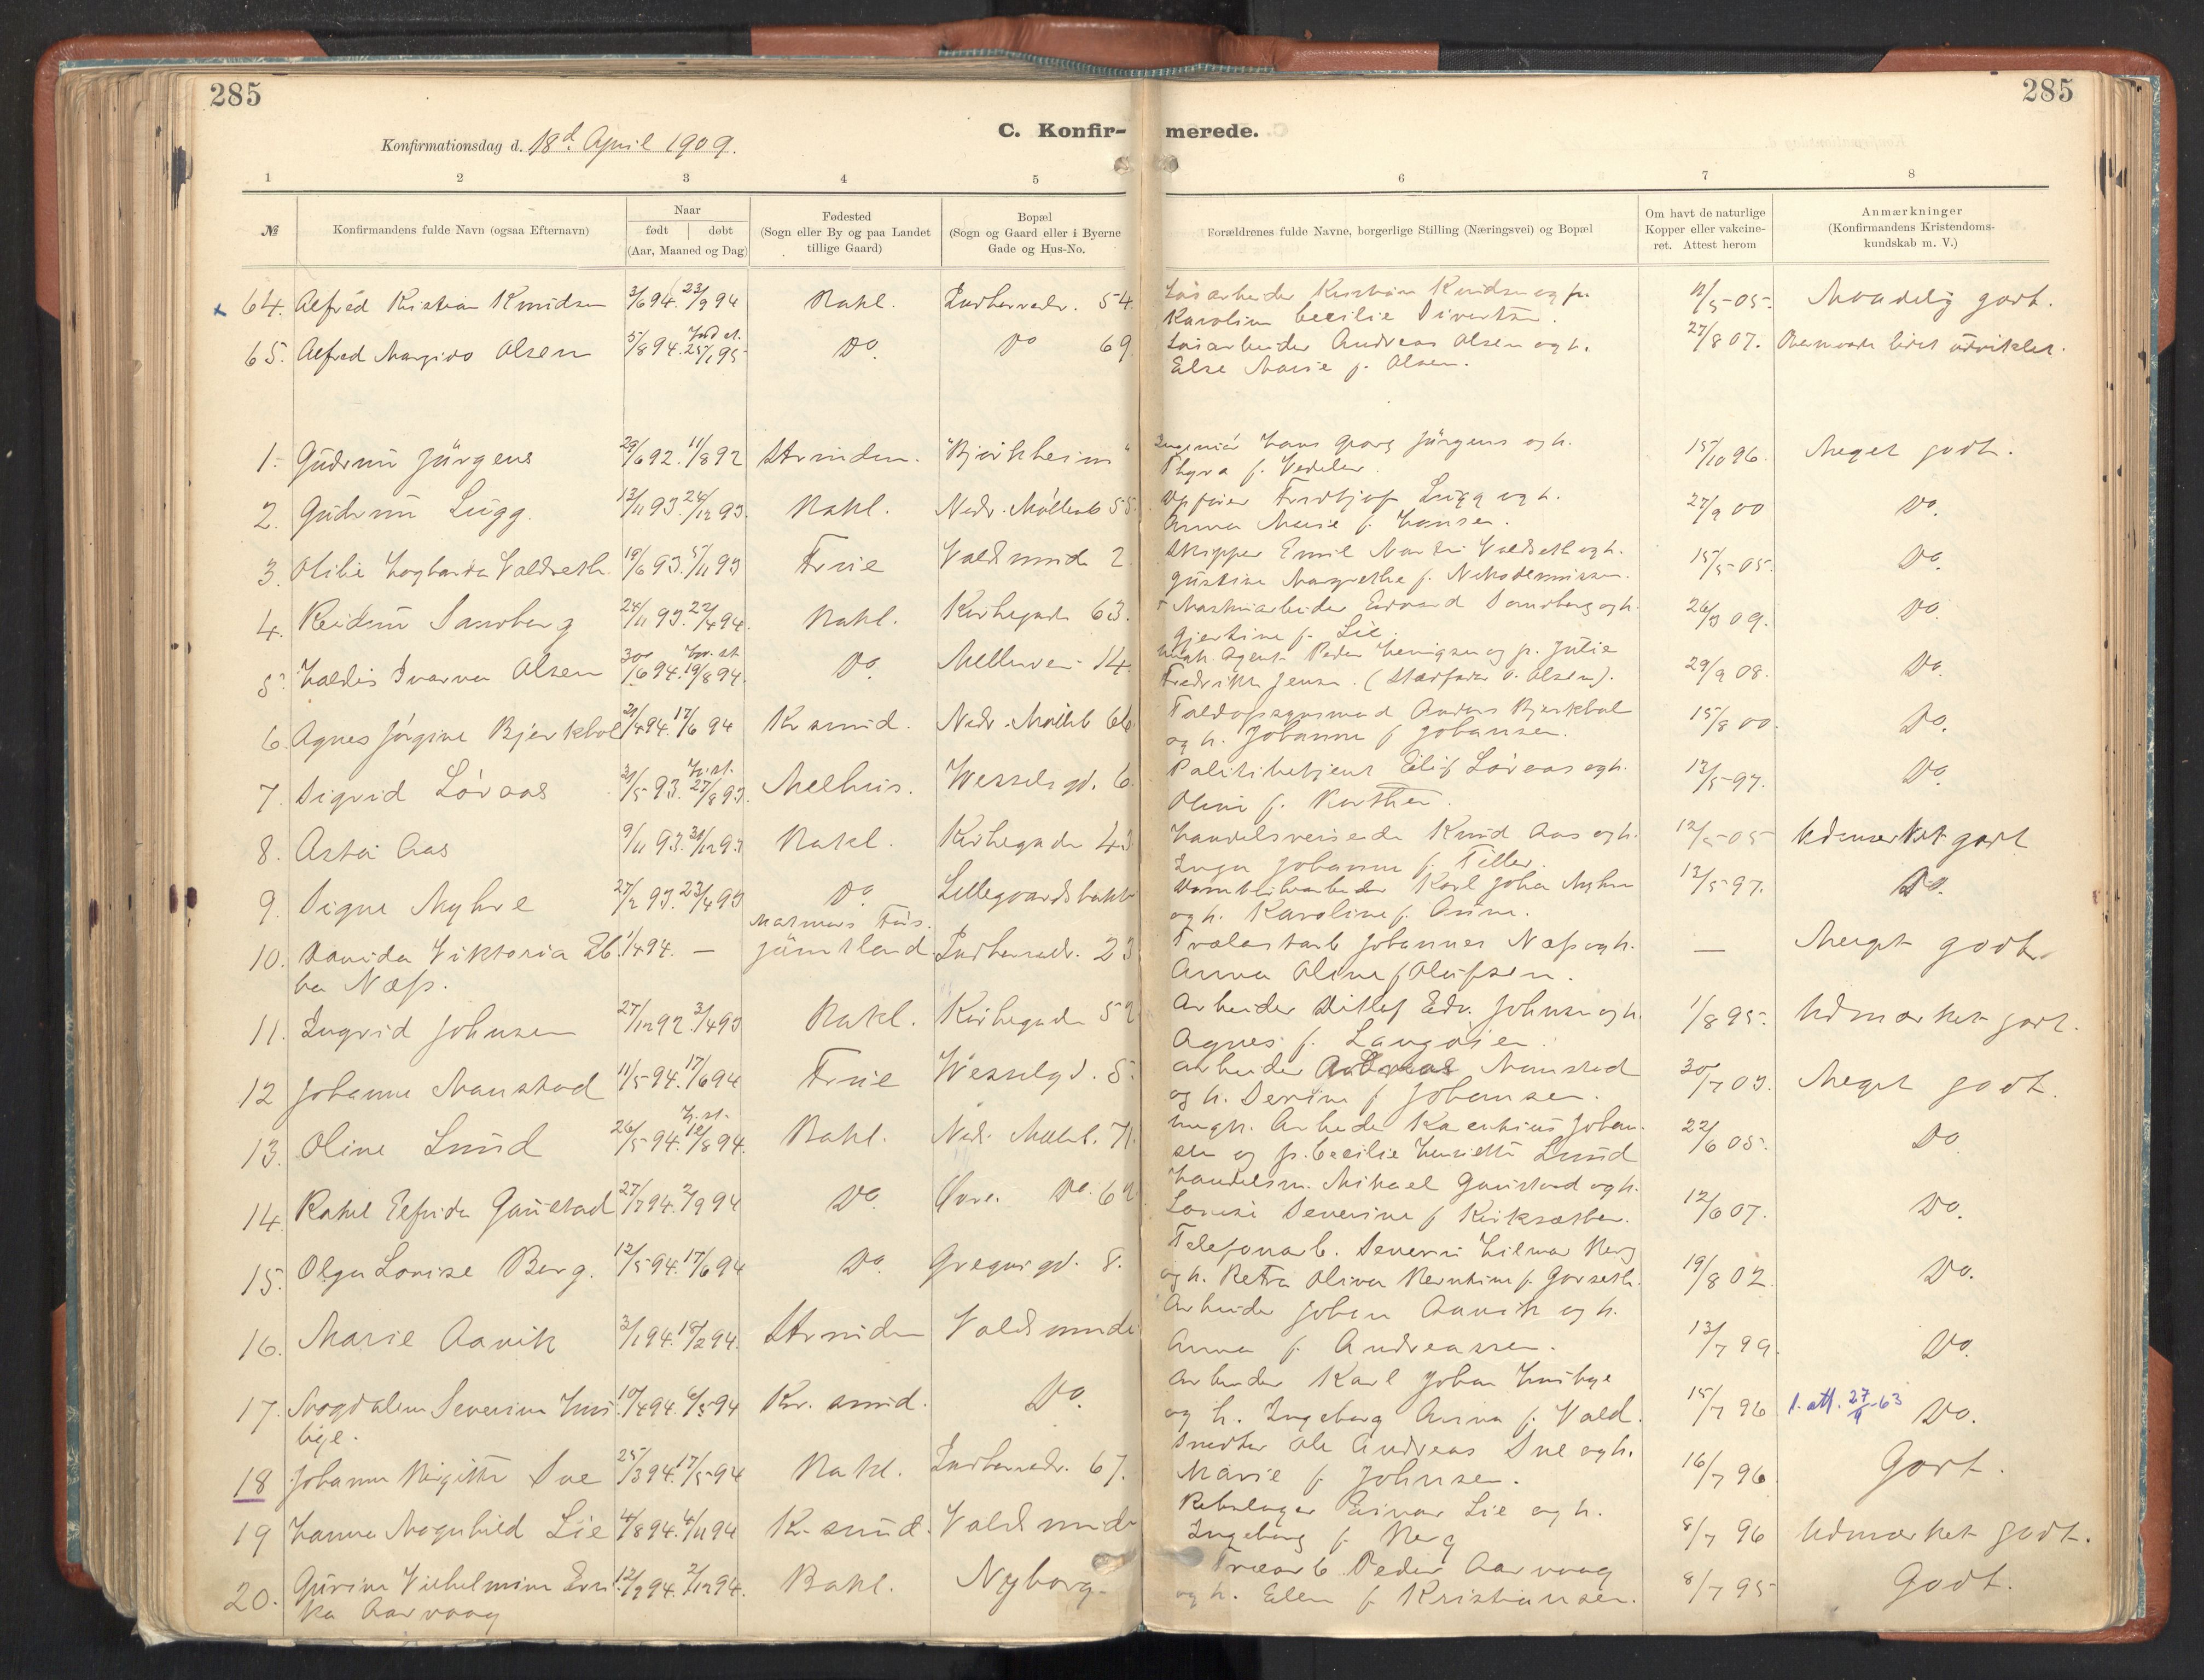 285
285
C. Konfir-
merede.
Konfirmationsdag d. 18d. April 1909.
1 2 3 4 5 6 7 8
№
Konfirmandens fulde Navn (ogsaa Efternavn)
Naar
født døbt
(Aar, Maaned og Dag)
Fødested
(Sogn eller By og paa Landet
tillige Gaard)
Bopæl
(Sogn og Gaard eller i Byerne
Gade og Hus-No.
Forældrenes fulde Navne, borgerlige Stilling (Næringsvei) og Bopæl
Om havt de naturlige
Kopper eller vakcine-
ret. Attest herom
Anmærkninger
(Konfirmandens Kristendoms-
kundskab m. V.)
64. Alfred Kristian Knudsen 3/6 94. 23/9 94 Bakl. Indherredv. 54 Løsarbeider Kristian Knudsen og p. 11/5-05. Maadelig godt.
Karoline Cecilie Sivertsen.
65. Alfred Margido Olsen 5/8 94. 25/1 95 Do. Do 69. Løsarbeider Andreas Olsen og h. 27/8 07. Overmaade lidet udviklet.
Else Marie f. Olsen.
1. Gudrun Jürgens 29/6 92. 11/8 92 Strinden. "Bjørkheim" Ingeniør Hans Georg Jürgens og h. 15/10 96. Meget godt.
Thyra f. Vedeler.
2. Gudrun Lugg. 13/11 93. 24/12 93. Bakl. Nedr. Møllenb 55. Opsier Fredthjof Lugg og h. 27/9 00 Do.
Anna Marie f. Hansen.
3. Otilie Valdseth 19/6 93. 5/11 93 Frue Vollsminde 2. Skipper Emil Valdseth og h. 15/5-05. Do.
Gustine Margrethe f. Nikodemussen.
4. Reidun Sandberg 24/11 93. 22/4 94. Bakl. Kirkegade 63. Maskinarbeider Edvard Sandberg og h. 26/3 09. Do.
Gjertine f. Lie.
5. Haldis Olsen 30/6 94. 19/8 94. Do. Mellemvei 14. Ungk. Agent Peder Henigsen og p. Julie 29/9 08. Do.
Fredrikke Jensen. (Stedfader O. Olsen).
6. Agnes Jørgine Bjerkhol 29/4 94. 17/6 94 Kr.sund. Nedr. Møllenb 66 Toldopsynsmand Anders Bjerkhol 15/8 00. Do.
og h. Johanne f Johansen.
7. Sigrid Løraas 31/5 93. 27/8 93. Melhus. Wesselsgd. 6. Politibetjent Eilif Løraas og h. 13/5-97. Do.
8. Asta Aas 9/11 93. 31/12 93 Bakl. Kirkegade 43 Handelsreisende Knud Aas og h. 12/5-05 Udmerket godt
Inga Johanna f. Tiller.
9. Signe Myhre 27/2 93. 23/4 93 Do. Lillegaardsbakk Karl Johan Myhre 13/5 97. Do.
og h. Karoline f.
10. Davida Viktoria Eb- 1/4 94. — Jämtland Indherredv. 23 Trælastarb Johannes Næss og h. — Meget godt.
ba Næss. Anna Oline f Olufsen.
11. Ingrid Johnsen 27/12 92. 3/4 93 Bakl. Kirkegade 52 Arbeider Ditlef Edv. Johnsen og h. 1/8 95. Udmærket godt.
Agnes f. Langåsen.
12 Johanne Manstad 11/5-94. 17/6 94 Frue Wesselgd. 5. Arbeider Andreas Manstad 30/7 03. Meget godt.
og h. Serine f Johansen.
13. Oline Lund 26/5-94. 12/8 94. Bakl. Ned. Møllenb. 71 Ungk. Arbeider Karenhius Johan- 22/6 05. Do
sen og p. Cecilie Henriette Lund
14. Rakel Elfrida Gaustad 27/7 94. 2/9 94 Do. Øvre. Do. 62 Handelsm. Mikael Gaustad og h. 12/6 07. Do.
Lovise Severine f Kirksæther.
15. Olga Lovise Berg. 12/5 94. 17/6 94 Do. Gregusgd. 8. Telefonarb. Severin Hilmar Berg 19/8 02. Do.
og h. Petra Oliva Berntine f. Garseth.
16. Marie Aavik 3/1 94. 18/2 94. Strinden Voldsminde Arbeider Johan Aavik og h. 13/7 99. Do.
Anna f. Andreassen.
17. Magdalene Severine Hus- 10/4 94. 6/5 94 Kr.sund. Do. Arbeider Karl Johan Husbye 15/7 96 l. att. 27/9-63 Do.
bye. og h. Ingeborg Anna f. Vold.
18 Johanne Birgitte Sve 25/3 94. 17/5-94 Bakl. Indherredv. 67. Snedker Ole Andreas Sve og h. 16/7 96. Godt.
Marie f. Johnsen.
19 Hanna Magnhild Lie 4/8 94. 4/11 94 Kr.sund. Voldsminde Rebslager Einar Lie og h. 8/7 96 Udmærket godt.
Ingeborg f. Berg
20. Gurine Vilhelmine Enri- 12/9 94. 2/12 94. Bakl. Nyborg. Træarb. Peder Aarvaag 8/7 95 Godt.
ka Aarvaag og h. Elen f Kristiansen.